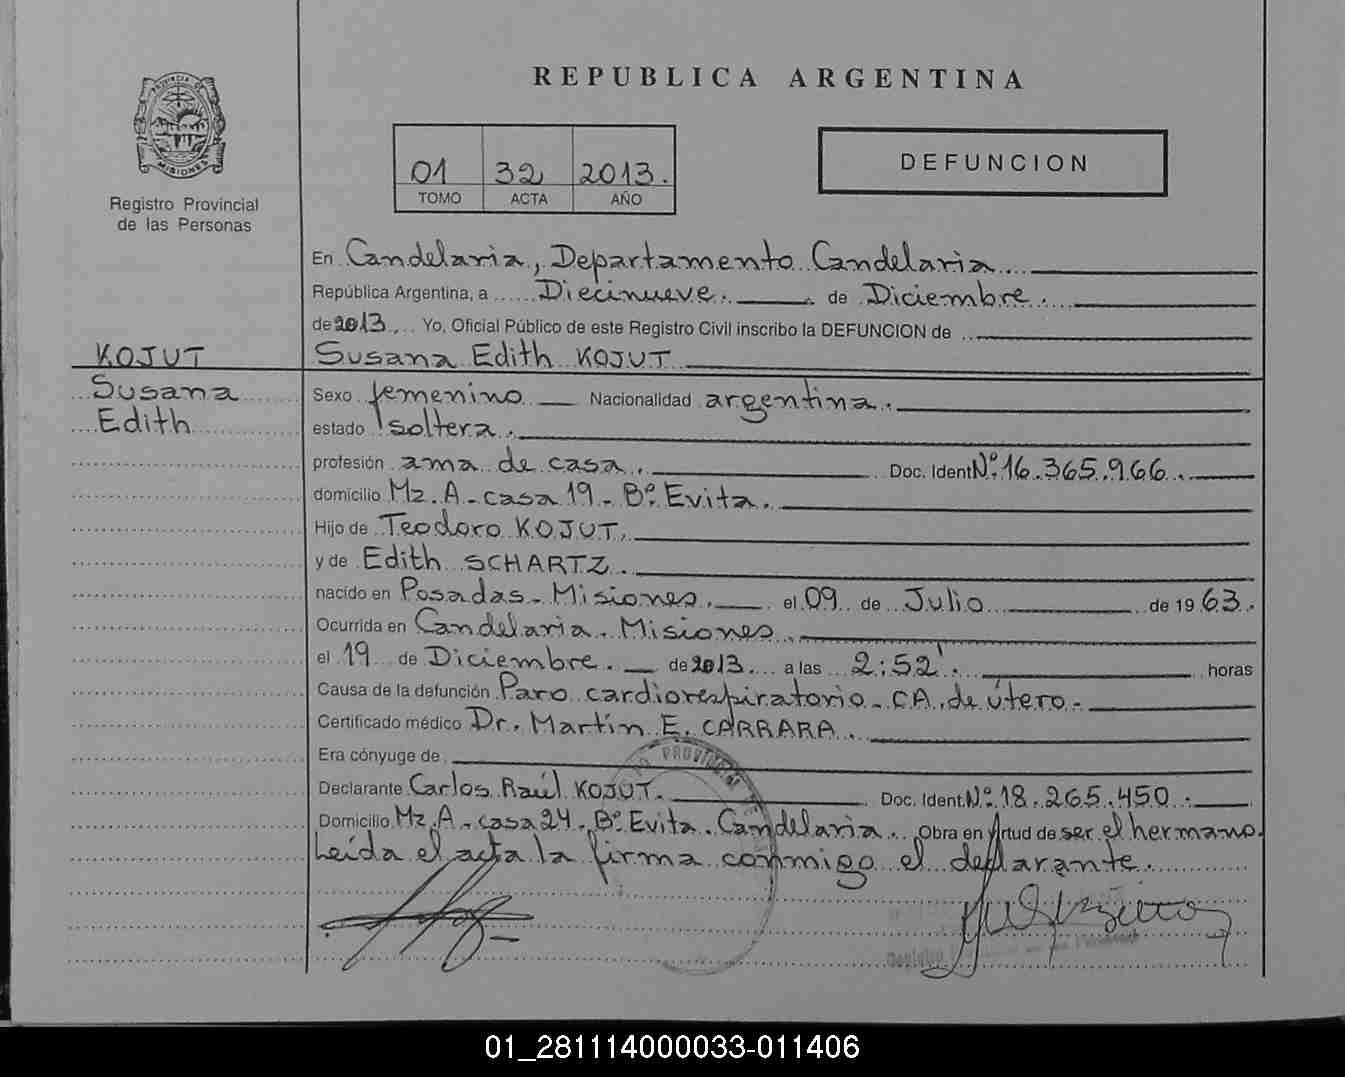 PROVINCIA DE
MISIONES
Registro Provincial
de las Personas
REPUBLICA ARGENTINA
01 32 2013.
TOMO ACTA AÑO
DEFUNCION
En Candelaria, Departamento Candelaria
República Argentina, a Diecinueve. de Diciembre.
de 2013. Yo, Oficial Público de este Registro Civil inscribo la DEFUNCION de
KOJUT Susana Edith KOJUT
Susana Sexo femenino Nacionalidad argentina.
Edith estado soltera.
profesión ama de casa. Doc. Ident Nº 16.365.966.
domicilio Mz. A - casa 19 - Bº Evita.
Hijo de Teodoro KOJUT.
y de Edith SCHARTZ.
nacido en Posadas - Misiones. el 09 de Julio de 1963.
Ocurrida en Candelaria. Misiones.
el 19 de Diciembre. de 2013. a las 2:52'. horas
Causa de la defunción Paro cardiorespiratorio - CA. de útero.
Certificado médico Dr. Martín E. CARRARA.
Era cónyuge de
Declarante Carlos Raúl KOJUT. Doc. Ident. Nº 18.265.450.
Domicilio Mz. A - casa 24 - Bº Evita. Candelaria. Obra en virtud de ser el hermano.
Leída el acta la firma conmigo el declarante.
01_281114000033-011406